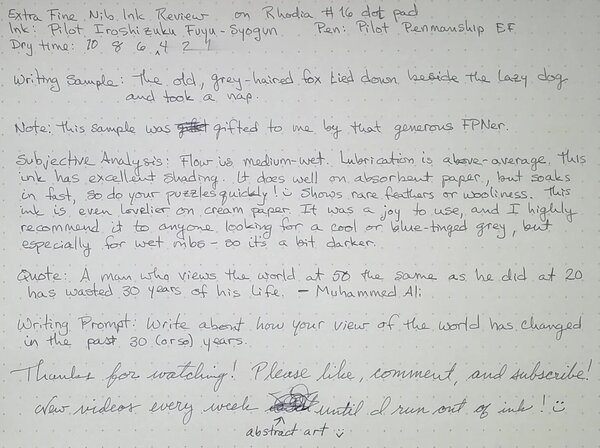 Extra Fine Nib Ink Review on Rhodia #16 dot pad
Ink: Pilot Iroshizuku Fuyu-Syogun Pen: Pilot Penmanship EF
Dry time: 10 8 6 4 2 1
Writing Sample: The old, grey-haired fox lied down beside the lazy dog
and took a nap.
Note: This sample was gifted to me by that generous FPNer.
Subjective Analysis: Flow is medium-wet. Lubrication is above-average. This
ink has excellent shading. It does well on absorbent paper, but soaks
in fast, so do your puzzles quickly! Shows rare feathers or wooliness. This
ink is even lovelier on cream paper. It was a joy to use, and I highly
recommend it to anyone looking for a cool or blue-tinged grey, but
especially for wet nibs - so it's a bit darker.
Quote: A man who views the world at 50 the same as he did at 20
has wasted 30 years of his life. - Muhammed Ali
Writing Prompt: Write about how your view of the world has changed
in the past 30 (or so) years.
Thanks for watching! Please like, comment, and subscribe!
New videos every week until I run out of ink!
abstract art